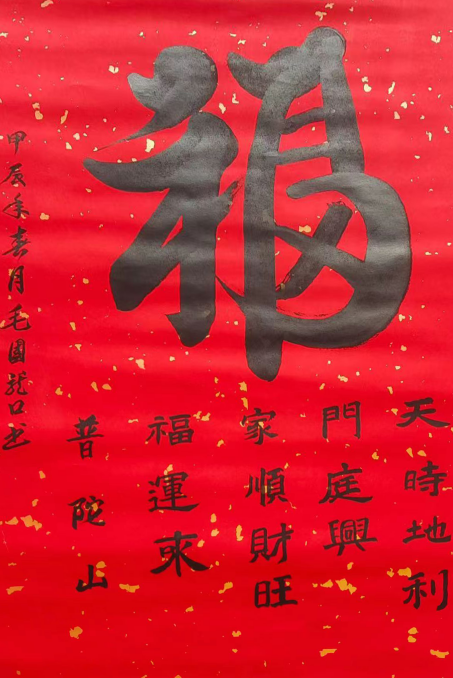 福
天時地利
門庭興
家順財旺
福運來
普陀山
甲辰年春月毛國龍口书